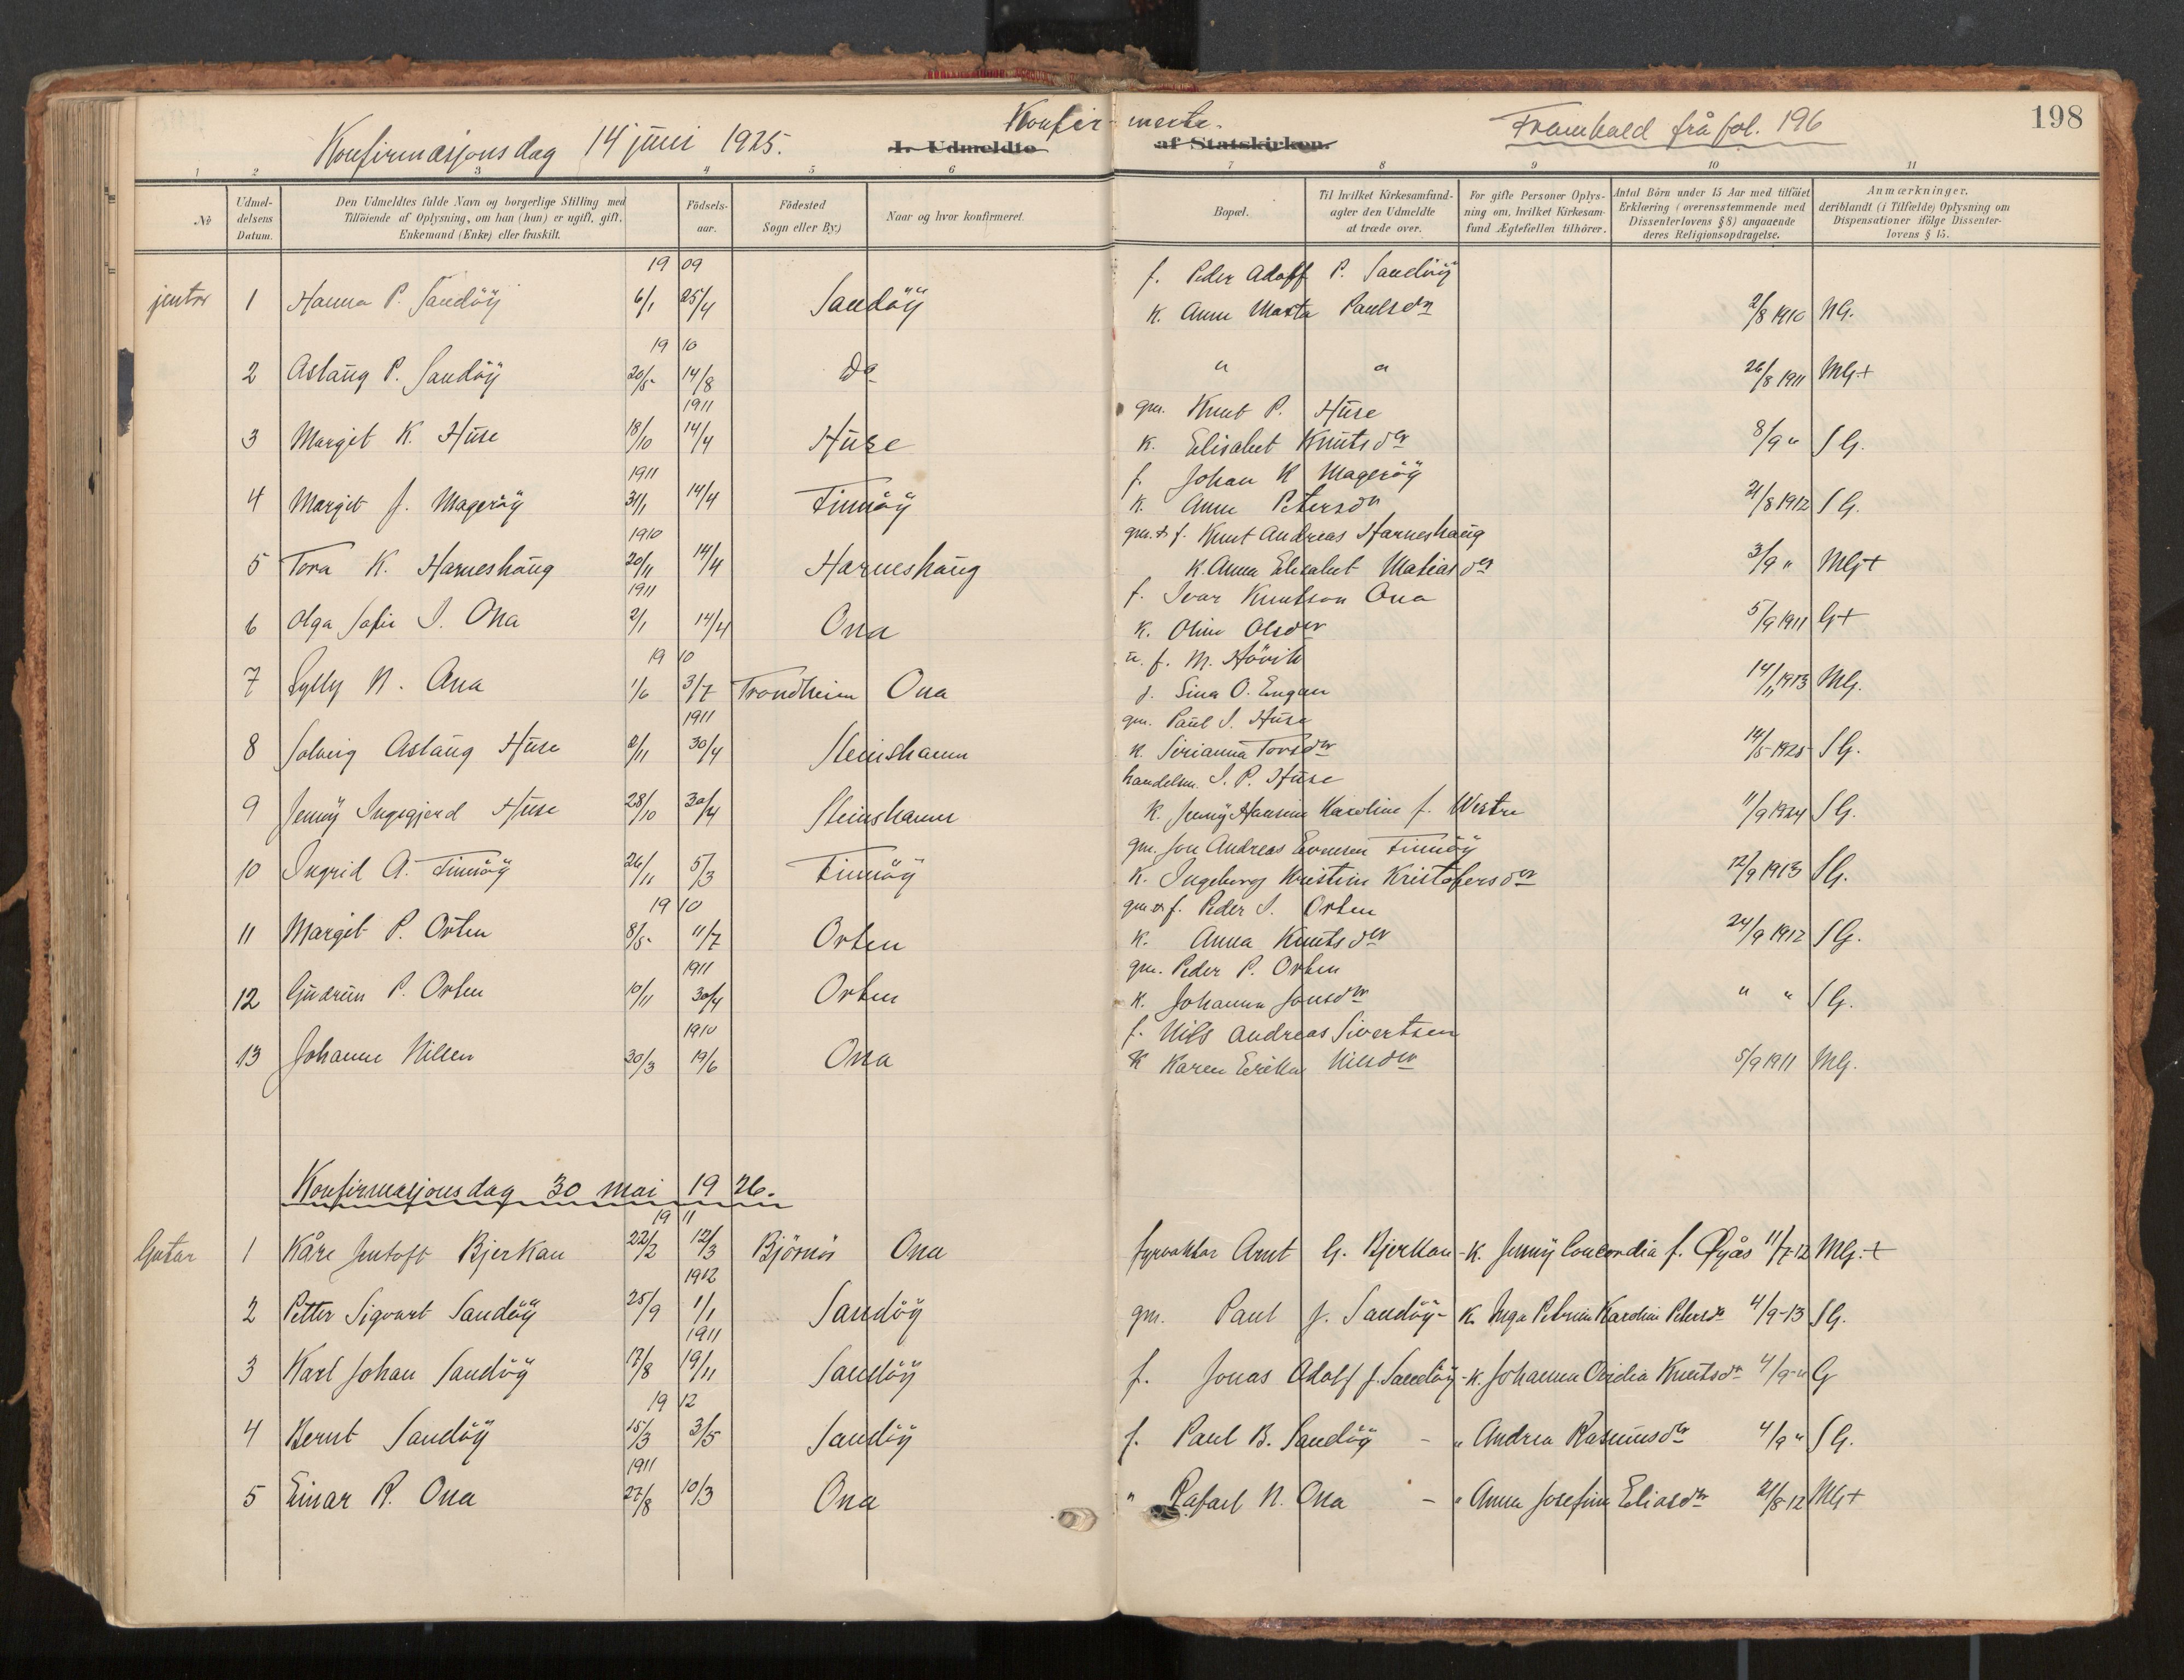 Konfirmasjonsdag 14 juni 1925.
Konfir- merte.
Framhald frå fol. 196
198
I. Udmeldte af Statskirken.
1 2 3 4 5 6 7 8 9 10 11
No
Udmeldelsens Datum.
Den Udmeldtes fulde Navn og borgerlige Stilling med Tilföiende af Oplysning, om han (hun) er ugift, gift, Enkemand (Enke) eller fraskilt.
Födselsaar.
Födested Sogn eller By.)
Naar og hvor konfirmeret.
Bopæl.
Til hvilket Kirkesamfund agter den Udmeldte at træde over.
For gifte Personer Oplysning om, hvilket Kirkesamfund Ægtefællen tilhörer.
Antal Börn under 15 Aar med tilföiet Erklæring (overensstemmende med Dissenterlovens § 8) angaaende deres Religionsopdragelse.
Anmærkninger, deriblandt (i Tilfælde) Oplysning om Dispensationer ifölge Dissenterlovens § 15.
19 09 f. Peder Adolf P. Sandöy
jenter 1 Hanna P. Sandöy 6/1 25/4 Sandöy K. Anne Marta Paulsdr 2/8 1910 NG.
19 10
2 Aslaug P. Sandöy 20/5 14/8 Do " " 26/8 1911 MG+
1911 gm. Knut P. Huse
3 Margit K. Huse 18/10 14/4 Huse K. Elisabet Knutsdr 8/9 " SG.
1911 f. Johan K Mageröy
4 Margit J. Mageröy 31/1 14/4 Finnöy K. Anne Petersdr 21/8 1912 SG.
1910 gm. & f. Knut Andreas Harneshaug
5 Tora K. Harneshaug 20/11 14/4 Harneshaug K. Anna Elisabet Matiasdr 3/9 " MG+
1911 f. Ivar Knutson Ona
6 Olga Sofie I. Ona 2/1 14/4 Ona K. Oline Olsdr 5/9 1911 G+
19 10 u. f. M. Hövik
7 Sylly N. Ona 1/6 3/7 Trondheim Ona J. Sina O. Engan 14/11 1913 MG.
1911 gm. Paul I. Huse
8 Solveig Aslaug Huse 2/11 30/4 Steinshamn K. Sirianna Torsdr 14/5 1925 SG.
handelsm. I. P. Huse
9 Jenny Ingegjerd Huse 28/10 30/4 Steinshamn K. Jenny Hansine Karoline f. Westre 11/9 1924 SG.
gm. Jon Andreas Evensen Finnöy
10 Ingrid A. Finnöy 26/11 5/3 Finnöy K. Ingeborg Kristine Kristofersdr 12/9 1913 SG.
19 10 gm & f. Peder I. Orten
11 Margit P. Orten 8/5 11/7 Orten K. Anna Knutsdr 24/9 1912 SG.
1911 gm. Peder P. Orten
12 Gudrun P. Orten 10/11 30/4 Orten K. Johanna Jonsdr " " SG.
1910 f. Nils Andreas Sivertsen
13 Johanne Nilsen 30/3 19/6 Ona K Karen Erikke Nilsdr 5/9 1911 MG.
Konfirmasjonsdag 30 mai 19 26.
19 11
Gutar 1 Kåre Jentoft Bjerkan 22/2 12/3 Björnör Ona fyrvaktar Arnt G. Bjerkan - K. Jenny Concordia f. Øyås 11/7-12 MG.+
1912
2 Petter Sigvart Sandöy 25/9 1/1 Sandöy gm. Paul J. Sandöy - K. Inga Petrine Karoline Petersdr 4/9-13 SG.
1911
3 Karl Johan Sandöy 17/8 19/11 Sandöy f. Jonas Adolf J. Sandöy - K. Johanna Ovidia Knutsdr 4/9-" G
19 12
4 Bernt Sandöy 15/3 3/5 Sandöy f. Paul B. Sandöy - " Andrea Rasmusdr 4/9 " SG.
1911
5 Einar R. Ona 27/8 10/3 Ona " Rafael N. Ona - " Anna Josefine Eliasdr 21/8-12 MG+